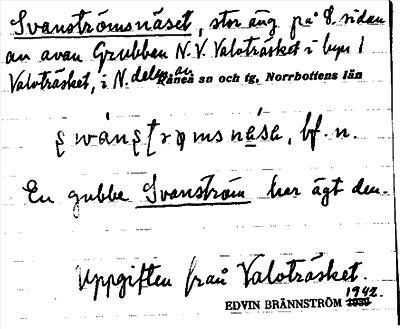 Svanströmsnäset, stor äng på S. sidan
an avan Grubban N.V. Valoträsket i byn 1
Valoträsket, i N. delen av
Råneå sn och tg, Norrbottens län
bf. n.
En gubbe Svanström har ägt den.
Uppgiften från Valoträsket.
1942.
EDVIN BRÄNNSTRÖM 1939